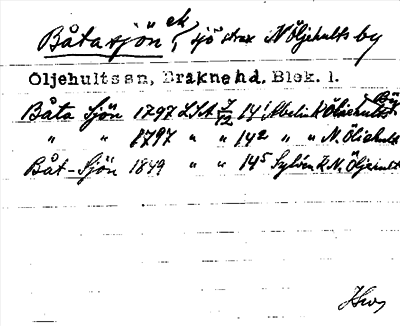 Båtasjön ek, sjö strax N Öljehults by
Öljehults sn, Bräkne hd. Blek. l.
Båta Sjön 1797 LSA 7/12 14¹ Öljehults By
" " 1797 " " 14² " " N. Öljehult
Båt-Sjön 1849 " " 14⁵ N. Öljehult